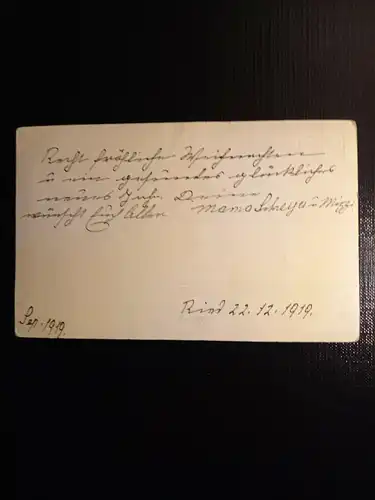 Recht fröhliche Weihnachten
u ein gesundes glückliches
neues Jahr. Deine
wünscht Euch Allen Mama u Mizzi
Ried 22.12.1919.
Sep. 1919.